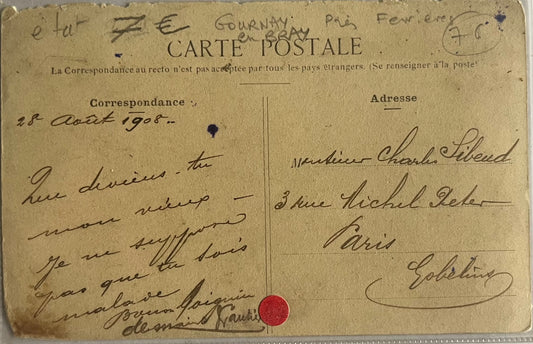 état 7 € GOURNAY en BRAY près Ferrières 76
CARTE POSTALE
La Correspondance au recto n'est pas acceptée par tous les pays étrangers. (Se renseigner à la poste
Correspondance
28 Août 1908
Que deviens-tu
mon vieux
Je ne suppose
pas que tu sois
malade
demain
Adresse
Monsieur Charles Sibend
3 Rue Michel Peter
Paris
Gobelins